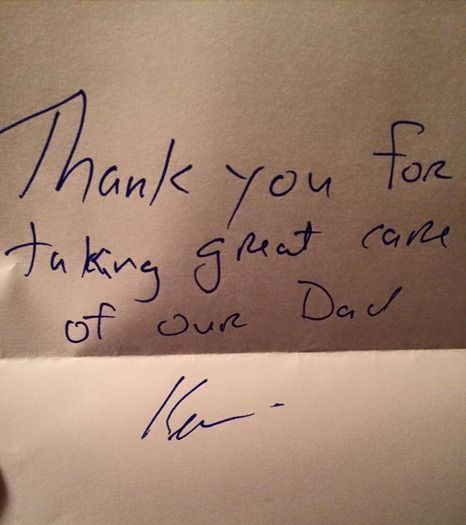 Thank you for
taking great care
of our Dad